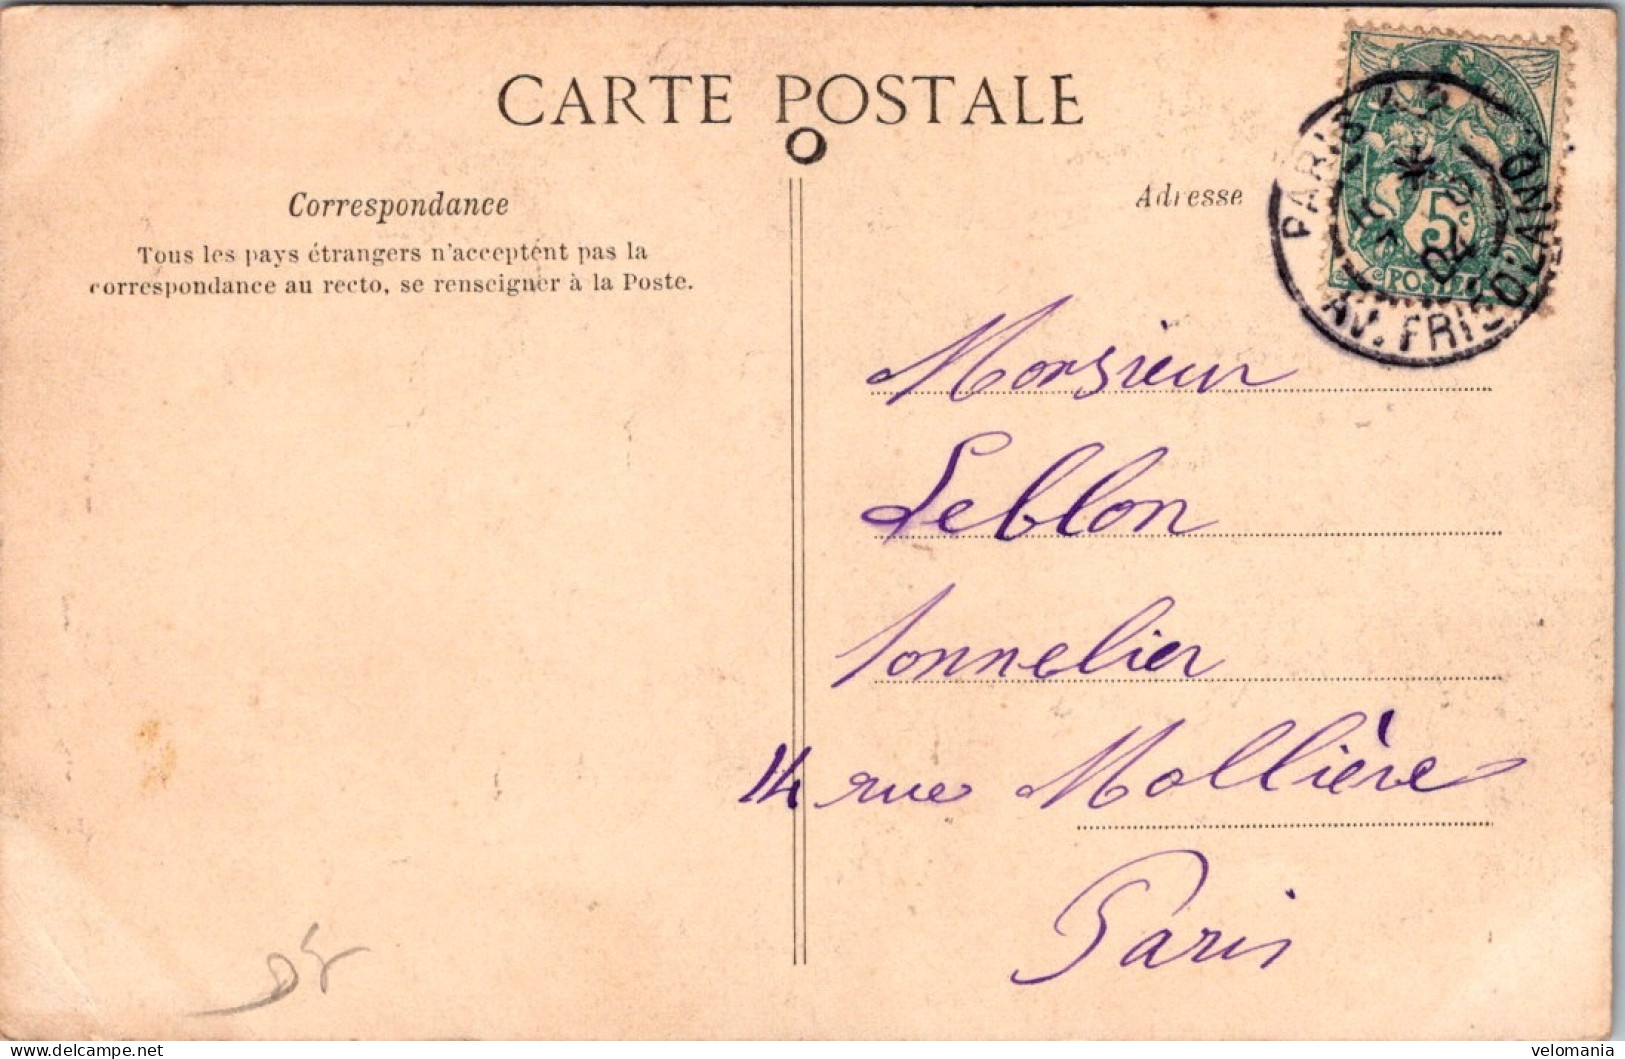 CARTE POSTALE
Correspondance
Tous les pays étrangers n'acceptent pas la
correspondance au recto, se renseigner à la Poste.
Adresse
PARIS
AV. FRIEDLAND
04
5c
POSTES
Monsieur
Leblon
Tonnelier
14 rue Mollière
Paris
delcampe.net
velomania